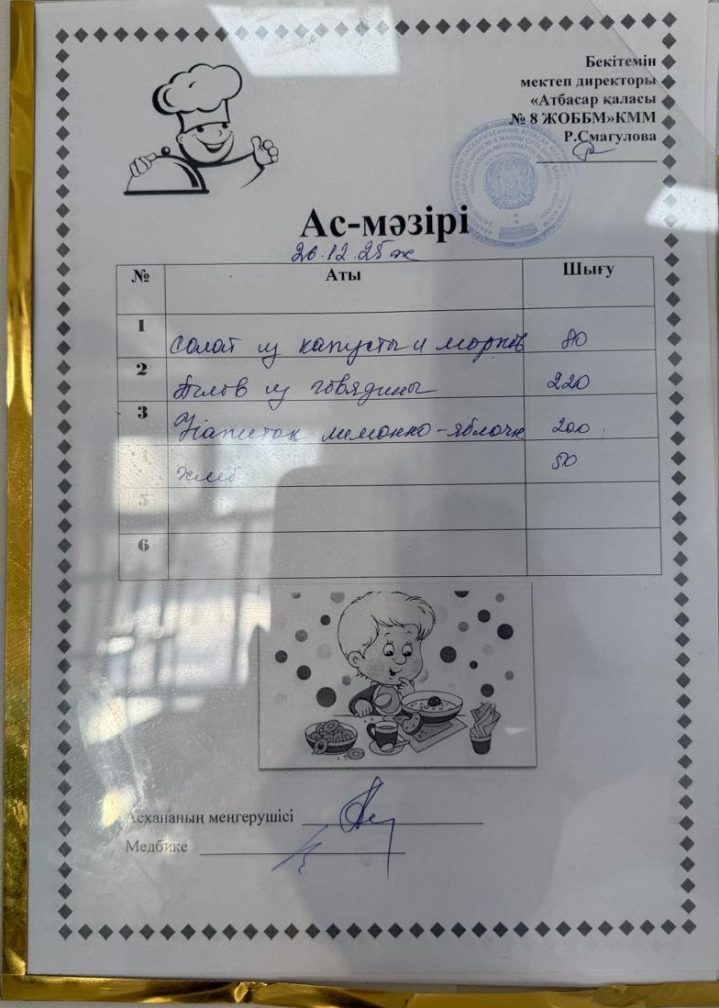 Бекітемін
мектеп директоры
«Атбасар қаласы
№ 8 ЖОББМ»КММ
Р.Смагулова
Ас-мәзірі
26.12.25 ж
№ Аты Шығу
1 Салат из капусты и морков 80
2 Плов из говядины 220
3 Напиток лимонно-яблочн 200
4 хлеб 50
5
6
Асхананың меңгерушісі
Медбике